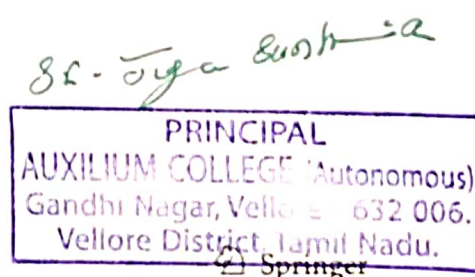 Sr.
PRINCIPAL
AUXILIUM COLLEGE (Autonomous)
Gandhi Nagar, Vello e 632 006.
Vellore District, Tamil Nadu.
Springer